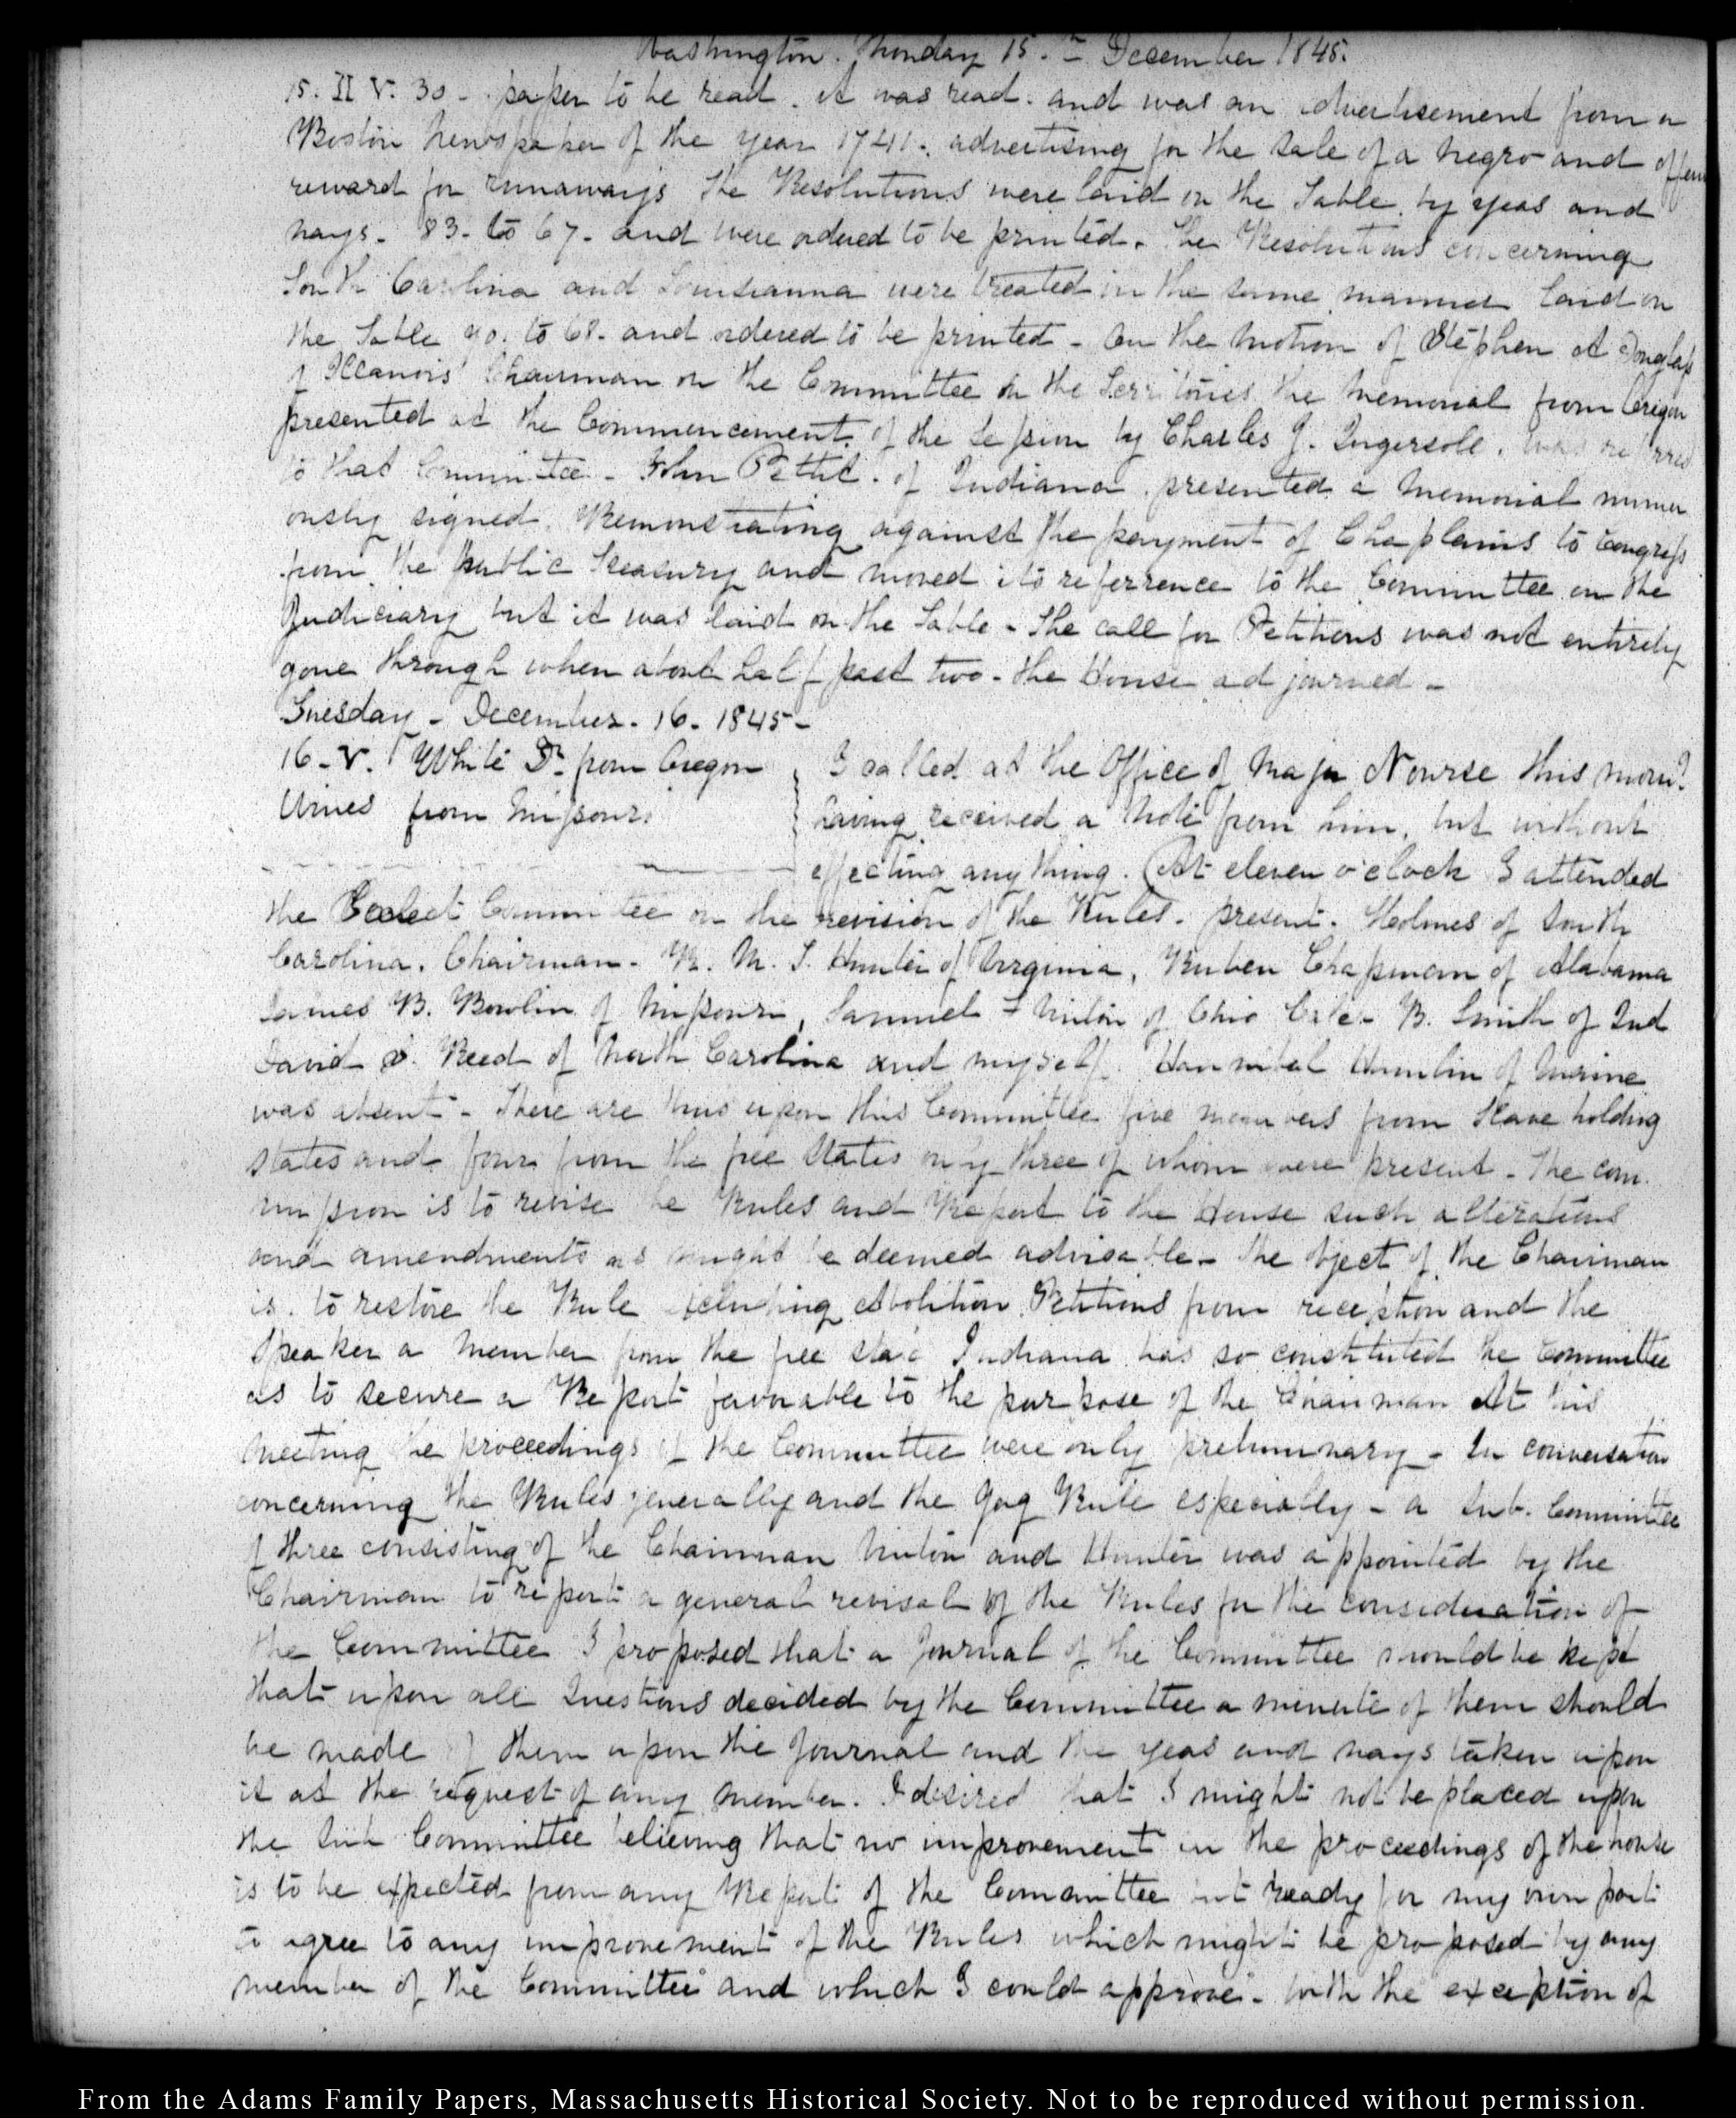 Washington. Monday 15.th December 1845.
15. II V. 30 - paper to be read. it was read. and was an advertisement from a
Boston Newspaper of the year 1741. advertising for the sale of a negro and
reward for runaways The Resolutions were laid on the Table. by yeas and
nays. 83. to 67. and were ordered to be printed. The Resolutions concerning
South Carolina and Louisianna were treated in the same manner laid on
the Table 90. to 68. and ordered to be printed - On the motion of Stephen A Douglass
of Illanois Chairman on the Committee on the Territories the Memorial from Oregon
presented at the Commencement of the Session by Charles J. Ingersoll. was referred
to that Committee - John Pettit. of Indiana. presented a Memorial numer
ously signed. Remonstrating against the payment of Chaplains to Congress
from the Public Treasury and moved its referrence to the Committee on the
Judiciary but it was laid on the Table - The call for Petitions was not entirely
gone through when about half past two - the House adjourned -
Tuesday - December. 16. 1845 -
16 - V. White Dr. from Oregon
from Missouri
I called at the Office of Major Nourse this morng
having received a Note from him, but without
effecting any thing. At eleven o'clock I attended
the Select Committee on the revision of the Rules. present. Holmes of South
Carolina. Chairman - R. M. T. Hunter of Virginia, Ruben Chapman of Alabama
James B. Bowlin of Missouri, Samuel F Vinton of Ohio Cale- B. Smith of Ind
David S. Reed of North Carolina and myself. Hannibal Hamlin of Maine
was absent - There are thus upon this Committee five members from Slave holding
States and four from the free States only three of whom were present - The com
mission is to revise the Rules and Report to the House such alterations
and amendments as might be deemed advisable - The object of the Chairman
is. to restore the Rule excluding Abolition Petitions from reception and the
Speaker a Member from the free state Indiana has so constituted the Committee
as to secure a Report favorable to the purpose of the Chairman At this
meeting the proceedings of the Committee were only preliminary - In conversation
concerning the Rules generally and the Gag Rule especially - a Sub. Committee
of three consisting of the Chairman Vinton and Hunter was appointed by the
Chairman to report a general revisal of the Rules for the consideration of
the Committee I proposed that a Journal of the Committee should be kept
that upon all Questions decided by the Committee a minute of them should
be made of them upon the Journal and the yeas and nays taken upon
it at the request of any member. I desired that I might not be placed upon
the Sub Committee believing that no improvement in the proceedings of the house
is to be expected from any Report of the Committee but ready for my own part
to agree to any improvement of the Rules which might be proposed by any
member of the Committee and which I could approve - with the exception of
From the Adams Family Papers, Massachusetts Historical Society. Not to be reproduced without permission.